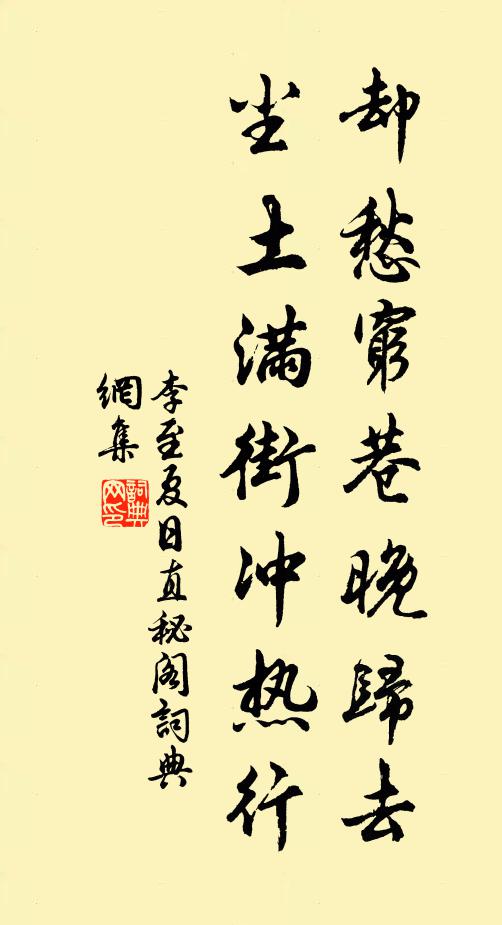 却愁窮巷晚歸去
尘土滿街冲热行
李至夏日直秘阁詞典
網集
詞典
网印